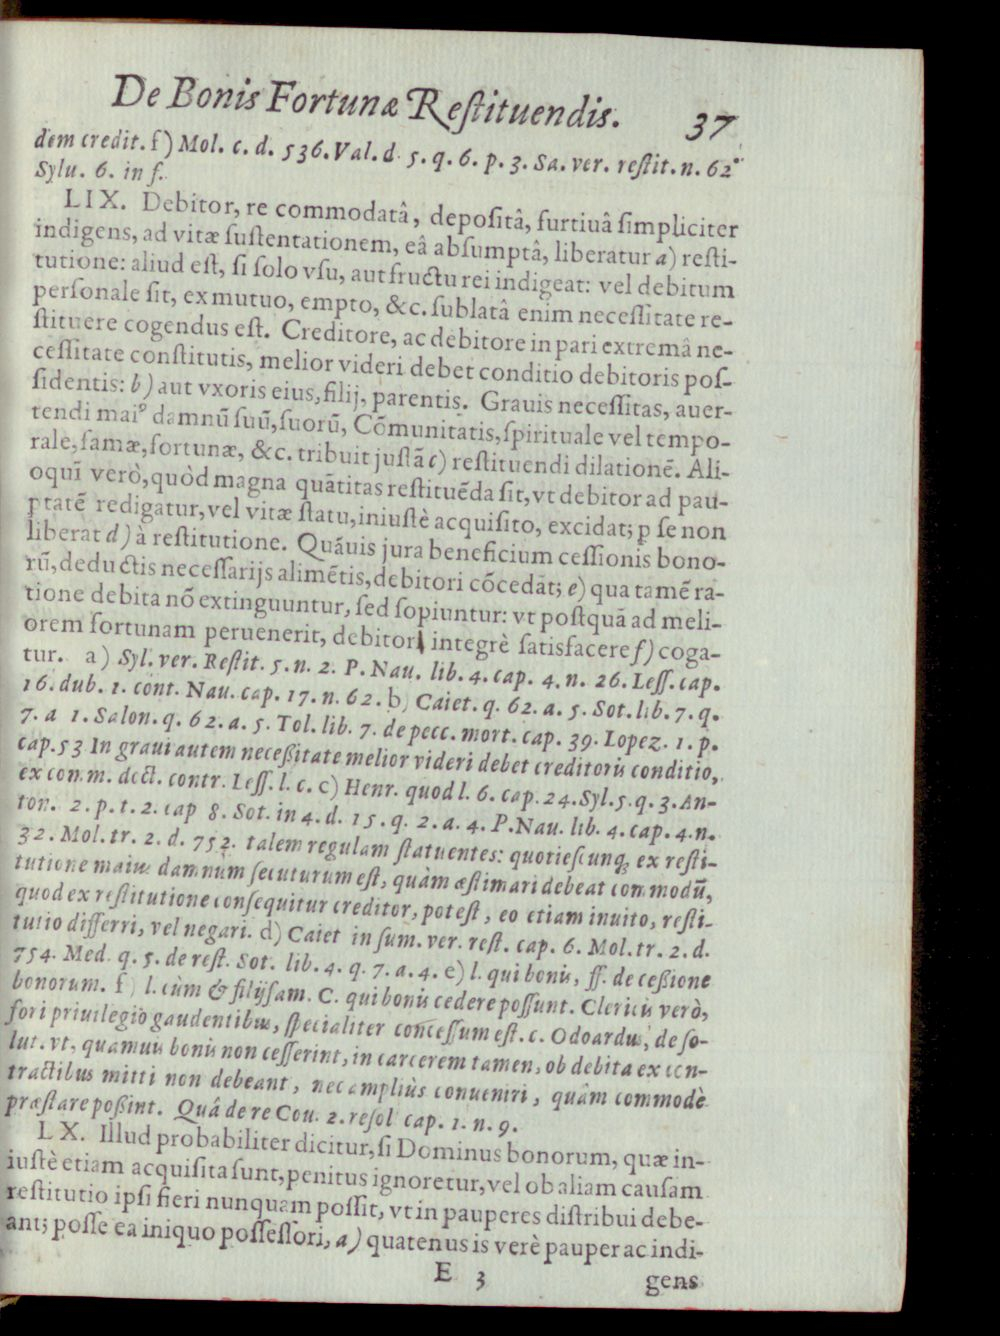 De Bonis Fortunæ Reſtituendis. 37
dem credit. f) Mol. c. d. 536. Val. d. 5. q. 6. p. 3. Sa. ver. reſtit. n. 62
Sylu. 6. in f.
LIX. Debitor, re commodatâ, depoſitâ, furtiuâ ſimpliciter
indigens, ad vitæ ſuſtentationem, eâ abſumptâ, liberatur a) reſti-
tutione: aliud eſt, ſi ſolo vſu, aut fructu rei indigeat: vel debitum
perſonale ſit, ex mutuo, empto, &c. ſublatâ enim neceſſitate re-
ſtituere cogendus eſt. Creditore, ac debitore in pari extremâ ne-
ceſſitate conſtitutis, melior videri debet conditio debitoris poſ-
ſidentis: b) aut vxoris eius, filij, parentis. Grauis neceſſitas, auer-
tendi maiꝰ damnũ ſuũ, ſuorũ, Cõmunitatis, ſpirituale vel tempo-
rale, famæ, fortunæ, &c. tribuit juſtã c) reſtituendi dilationẽ. Ali-
oquĩ verò, quòd magna quãtitas reſtituẽda ſit, vt debitor ad pau-
ptatẽ redigatur, vel vitæ ſtatu, iniuſtè acquiſito, excidat; p ſe non
liberat d) à reſtitutione. Quãuis jura beneficium ceſſionis bono-
rũ, deductis neceſſarijs alimẽtis, debitori cõcedãt; e) qua tamẽ ra-
tione debita nõ extinguuntur, ſed ſopiuntur: vt poſtquã ad meli-
orem fortunam peruenerit, debitor integrè ſatisfacere f) coga-
tur. a) Syl. ver. Reſtit. 5. n. 2. P. Nau. lib. 4. cap. 4. n. 26. Leſſ. cap.
16. dub. 1. cont. Nau. cap. 17. n. 62. b) Caiet. q. 62. a. 5. Sot. lib. 7. q.
7. a 1. Salon. q. 62. a. 5. Tol. lib. 7. de pecc. mort. cap. 39. Lopez. 1. p.
cap. 53 In graui autem neceßitate melior videri debet creditoris conditio,
ex com. m. doct. contr. Leſſ. l. c. c) Henr. quodl. 6. cap. 24. Syl. 5. q. 3. An-
ton. 2. p. t. 2. cap 8. Sot. in 4. d. 15. q. 2. a. 4. P. Nau. lib. 4. cap. 4. n.
32. Mol. tr. 2. d. 752. talem regulam ſtatuentes: quotieſcunq; ex reſti-
tutione maius damnum ſecuturum eſt, quàm æſtimari debeat commodũ,
quod ex reſtitutione conſequitur creditor, poteſt, eo etiam inuito, reſti-
tutio differri, vel negari. d) Caiet in ſum. ver. reſt. cap. 6. Mol. tr. 2. d.
754. Med. q. 5. de reſt. Sot. lib. 4. q. 7. a. 4. e) l. qui bonis, ff. de ceßione
bonorum. f) l. cùm & filijfam. C. qui bonis cedere poſſunt. Clericis verò,
fori priuilegio gaudentibus, ſpecialiter conceſſum eſt. c. Odoardus, de ſo-
lut. vt, quamuis bonis non ceſſerint, in carcerem tamen, ob debita ex con-
tractibus mitti non debeant, nec ampliùs conueniri, quàm commodè
præſtare poßint. Quâ de re Cou. 2. reſol cap. 1. n. 9.
LX. Illud probabiliter dicitur, ſi Dominus bonorum, quæ in-
iuſtè etiam acquiſita ſunt, penitus ignoretur, vel ob aliam cauſam
reſtitutio ipſi fieri nunquam poſſit, vt in pauperes diſtribui debe-
ant; poſſe ea iniquo poſſeſſori, a) quatenus is verè pauper ac indi-
E 3 gens